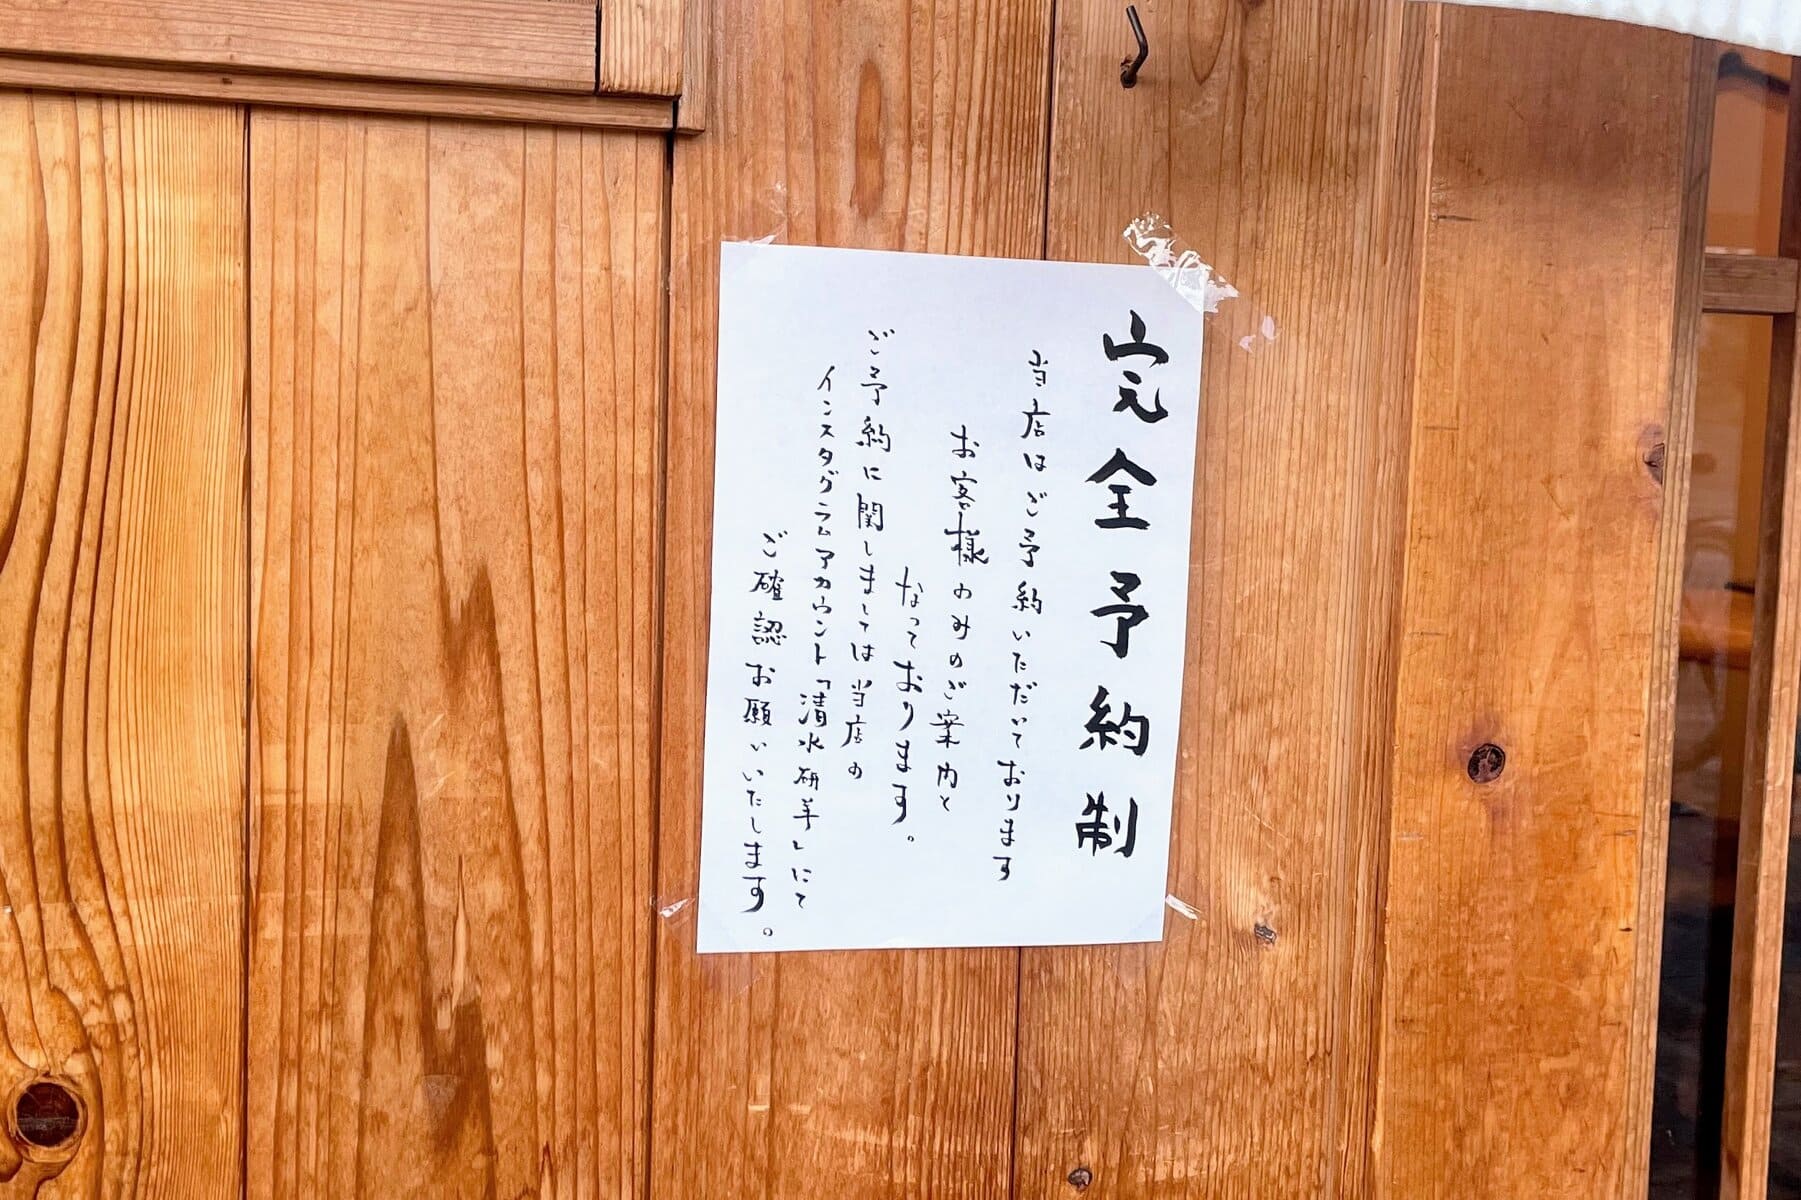 完全予約制
当店はご予約いただいております
お客様のみのご案内と
なっております。
ご予約に関しましては当店の
インスタグラムアカウント「清水研羊」にて
ご確認お願いいたします。